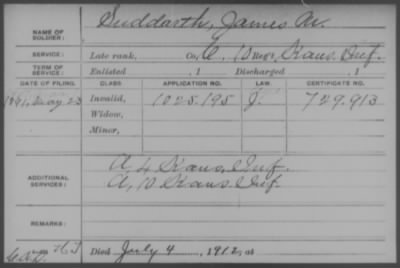 NAME OF SOLDIER: Suddarth, James M.
SERVICE: Late rank, Co. C, 10 Reg't, Kans. Inf.
TERM OF SERVICE: Enlisted , 1 Discharged , 1
DATE OF FILING. CLASS. APPLICATION NO. LAW. CERTIFICATE NO.
1891, May 23 Invalid, 1025.195 J. 729.913
Widow,
Minor,
ADDITIONAL SERVICES: A, 4 Kans. Inf.
A, 10 Kans. Inf.
REMARKS:
Died July 4, 1912, at